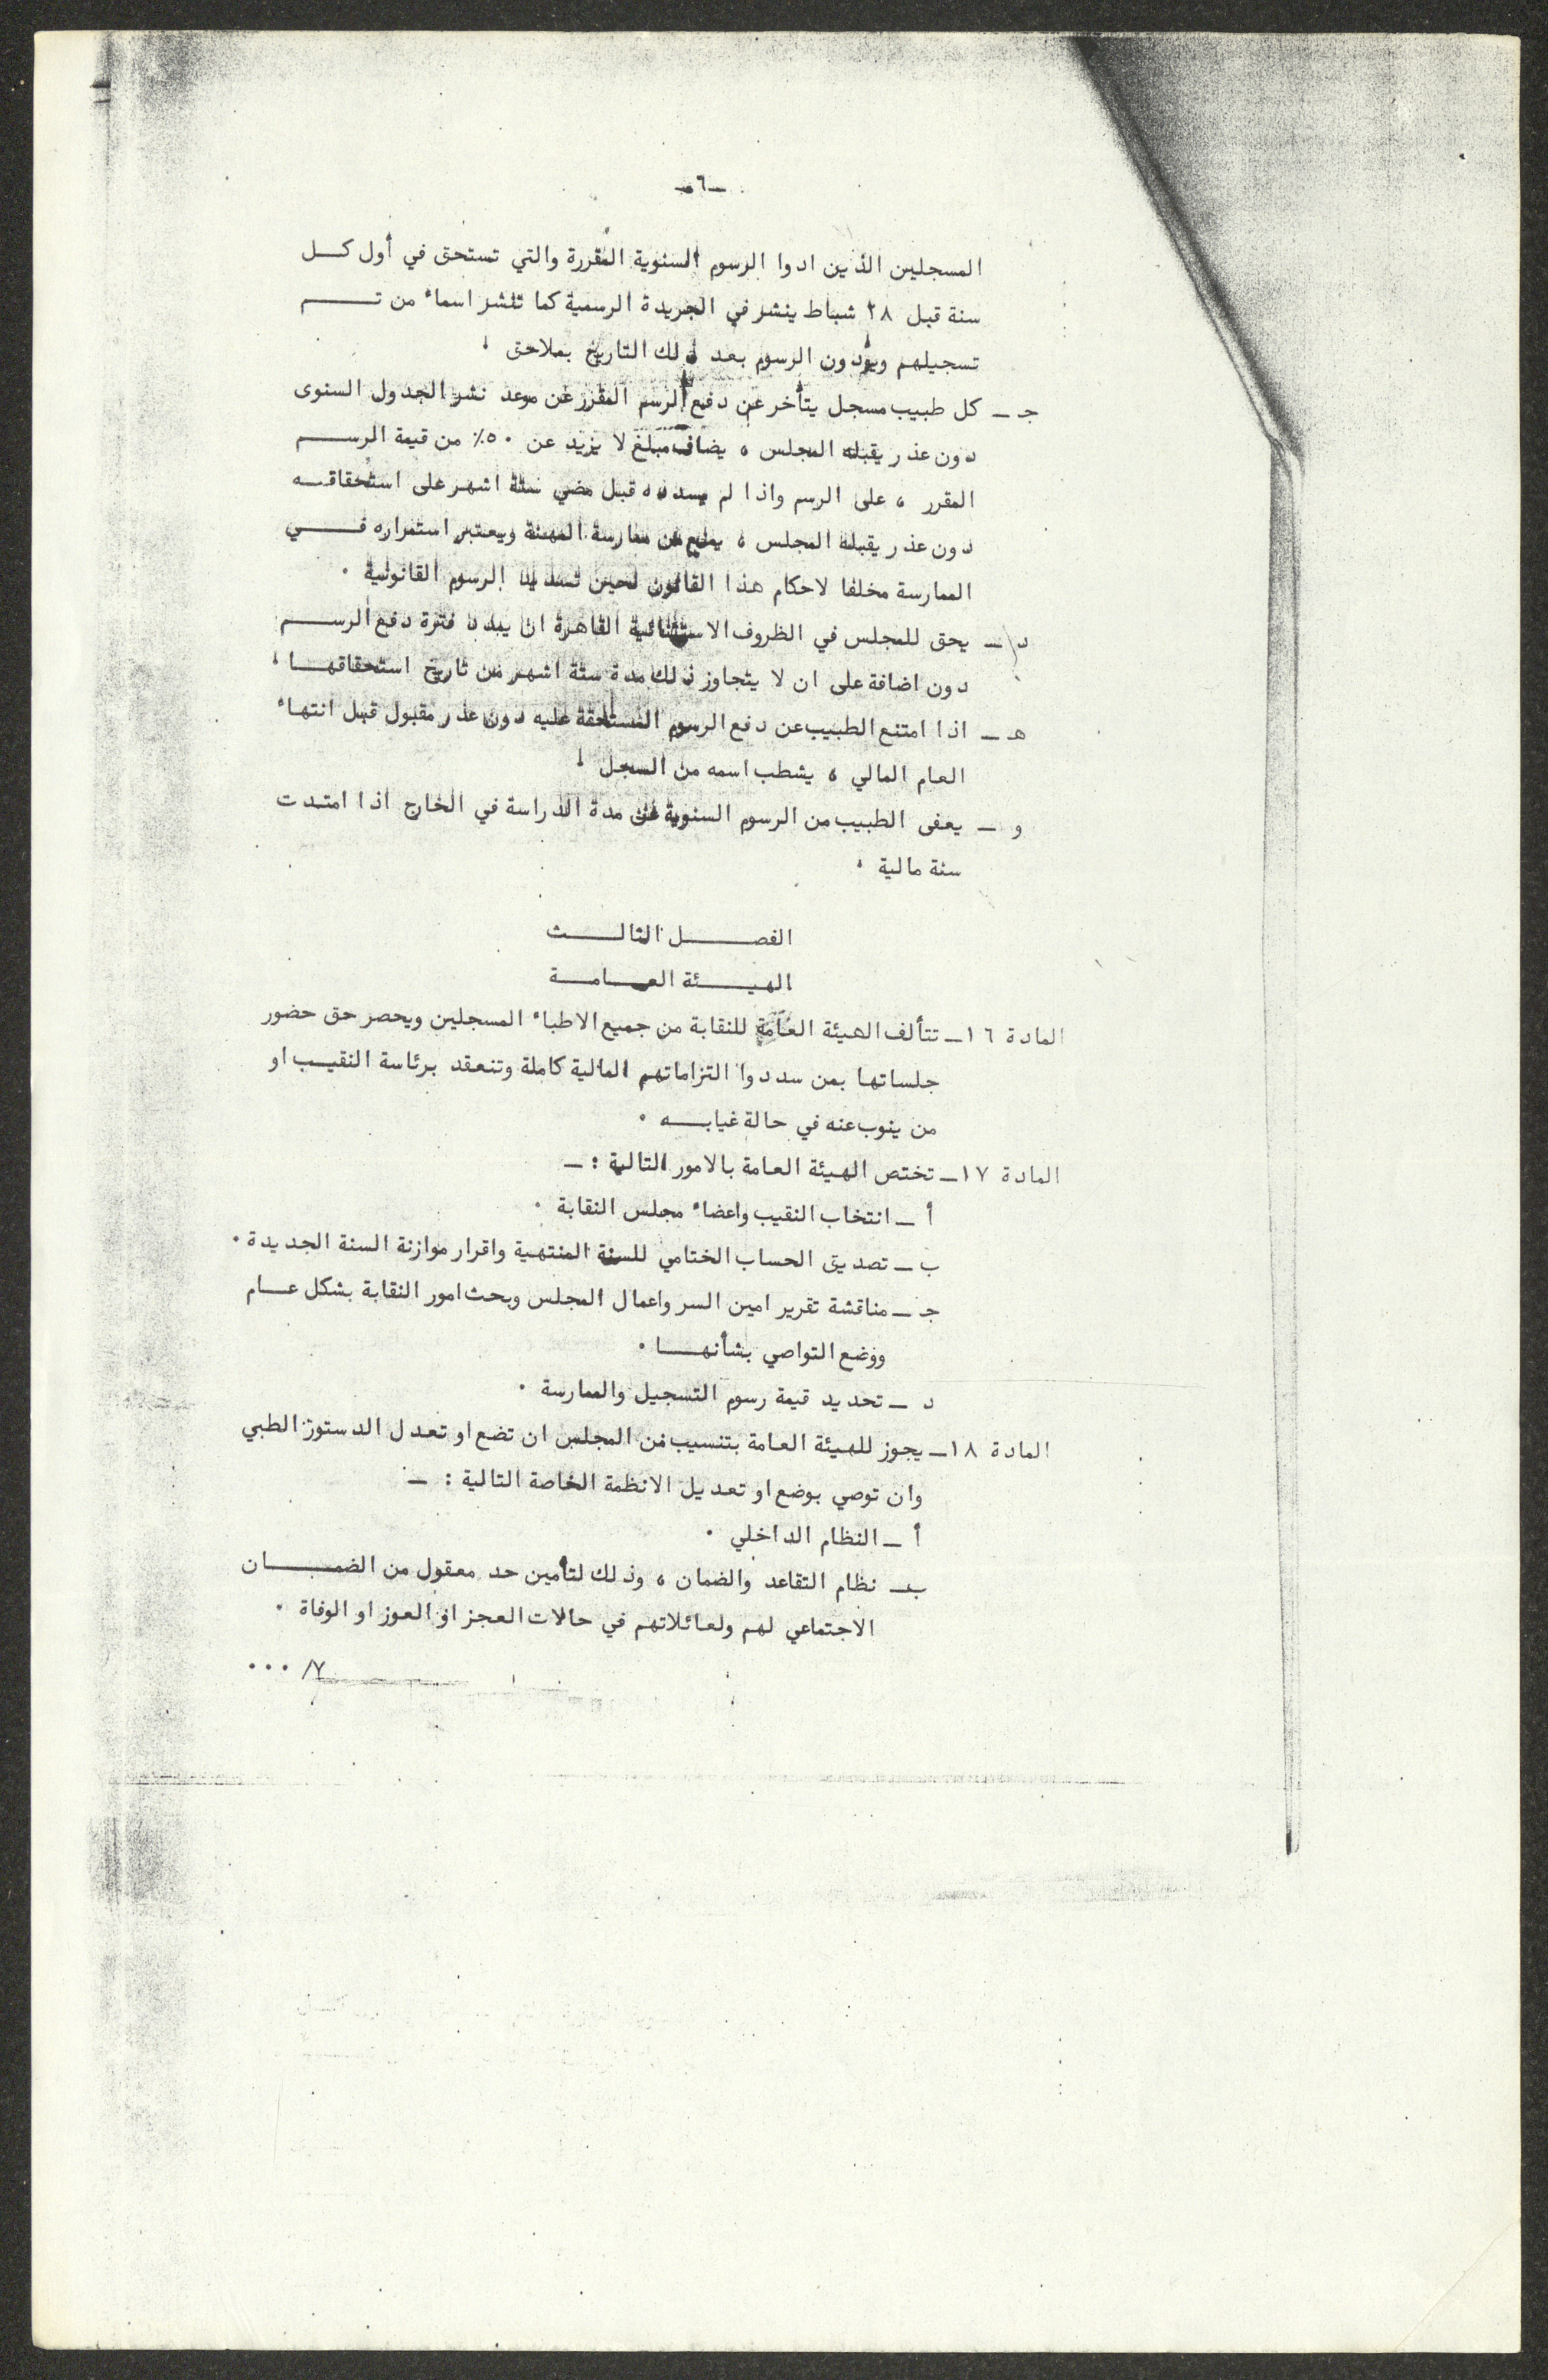 -٦-
المسجلين الذين ادوا الرسوم السنوية المقررة والتي تستحق في أول كل
سنة قبل ٢٨ شباط ينشر في الجريدة الرسمية كما تنشر اسماء من تم
تسجيلهم ويؤدون الرسوم بعد ذلك التاريخ بملاحق .
جـ - كل طبيب مسجل يتأخر عن دفع الرسم المقرر عن موعد نشر الجدول السنوى
دون عذر يقبله المجلس ، يضاف مبلغ لا يزيد عن ٥٠٪ من قيمة الرسم
المقرر ، على الرسم واذا لم يسدده قبل مضي ستة اشهر على استحقاقه
دون عذر يقبله المجلس ، يمنع من ممارسة المهنة ويعتبر استمراره في
الممارسة مخلفا لاحكام هذا القانون لحين تسديد الرسوم القانونية .
د - يحق للمجلس في الظروف الاستثنائية القاهرة ان يمدد فترة دفع الرسم
دون اضافة على ان لا يتجاوز ذلك مدة ستة اشهر من تاريخ استحقاقها .
هـ - اذا امتنع الطبيب عن دفع الرسوم المستحقة عليه دون عذر مقبول قبل انتهاء
العام المالي ، يشطب اسمه من السجل .
و - يعفى الطبيب من الرسوم السنوية عن مدة الدراسة في الخارج اذا امتدت
سنة مالية .
الفصل الثالث
الهيئة العامة
المادة ١٦- تتألف الهيئة العامة للنقابة من جميع الاطباء المسجلين ويحصر حق حضور
جلساتها بمن سددوا التزاماتهم المالية كاملة وتنعقد برئاسة النقيب او
من ينوب عنه في حالة غيابه .
المادة ١٧- تختص الهيئة العامة بالامور التالية : -
أ - انتخاب النقيب واعضاء مجلس النقابة .
ب - تصديق الحساب الختامي للسنة المنتهية واقرار موازنة السنة الجديدة .
جـ - مناقشة تقرير امين السر واعمال المجلس وبحث امور النقابة بشكل عام
ووضع التواصي بشأنها .
د - تحديد قيمة رسوم التسجيل والممارسة .
المادة ١٨- يجوز للهيئة العامة بتنسيب من المجلس ان تضع او تعدل الدستور الطبي
وان توصي بوضع او تعديل الانظمة الخاصة التالية : -
أ - النظام الداخلي .
بـ - نظام التقاعد والضمان ، وذلك لتأمين حد معقول من الضمان
الاجتماعي لهم ولعائلاتهم في حالات العجز او العوز او الوفاة .
٧/ ...